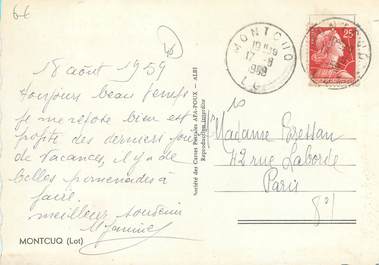 66
18 août 1959
Toujours beau temps
je me repose bien et
profite des derniers jours
de vacances, il y a de
belles promenades à
faire.
meilleur souvenir
MONTCUQ (Lot)
Société des Cartes Postales APA-POUX - ALBI
Reproduction interdite
MONTCUQ
17 -8
1959
LOT
25
Madame
42 rue Laborde
Paris
8e